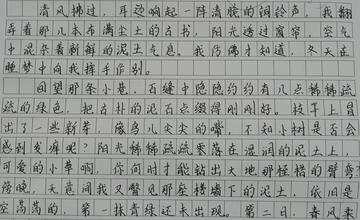 清风拂过，耳边响起一阵清脆的铜铃声，我翻
弄着那几本布满尘土的古书，阳光透过窗帘，空气
中混杂着新鲜的泥土气息，我仿佛才知道，冬天在
睡梦中向我挥手作别。
回望那条小巷，石缝中隐隐约约有几点稀稀疏
疏的绿色，把古朴的泥石点缀得刚刚好。枝子上冒
出了一些新芽，像鸟儿尖尖的嘴，不知小树是否会
感到发痒呢？阳光稀稀疏疏零落在湿润的泥土上，
可爱的小草啊，你何时才能钻出大地那怪楷的臂弯
傍晚，无意间我又瞥见那座楼墙下的泥土，依旧是
空荡荡的，第一抹青绿还未出现。第二日，春风柔